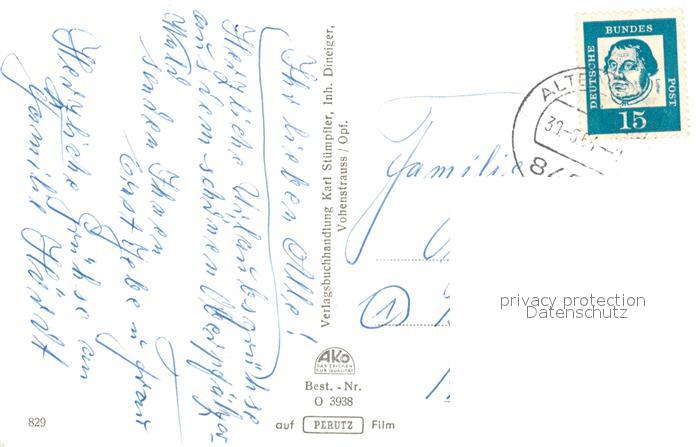 Ihr lieben Alle!
Herzliche Urlaubsgrüsse
aus dem schönen Oberpfälzer-
Wald
senden Ihnen
Frau
Herzliche Grüsse an
Familie
Verlagsbuchhandlung Karl Stümpfler, Inh. Dineiger,
Vohenstrauss / Opf.
AKO
DAS ZEICHEN
FÜR QUALITÄT
Best. - Nr.
O 3938
auf PERUTZ Film
829
DEUTSCHE BUNDES POST
Luther
15
ALT
Familie
1
privacy protection
Datenschutz